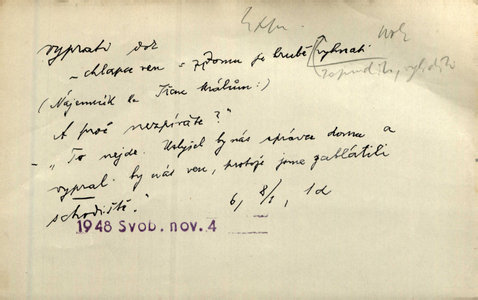 Expr.
vyprati dok
– chlapa ven z domu je hrubě vyhnati
zapuditi, vyhoditi
(Nájemník ke Třem králům:)
A proč nezpíváte?"
– „To nejde. Uslyšel by nás správce domu a
vypral by nás ven, protože jsme zablátili
schodiště."
6, 8/I, 1d
1948 Svob. nov. 4